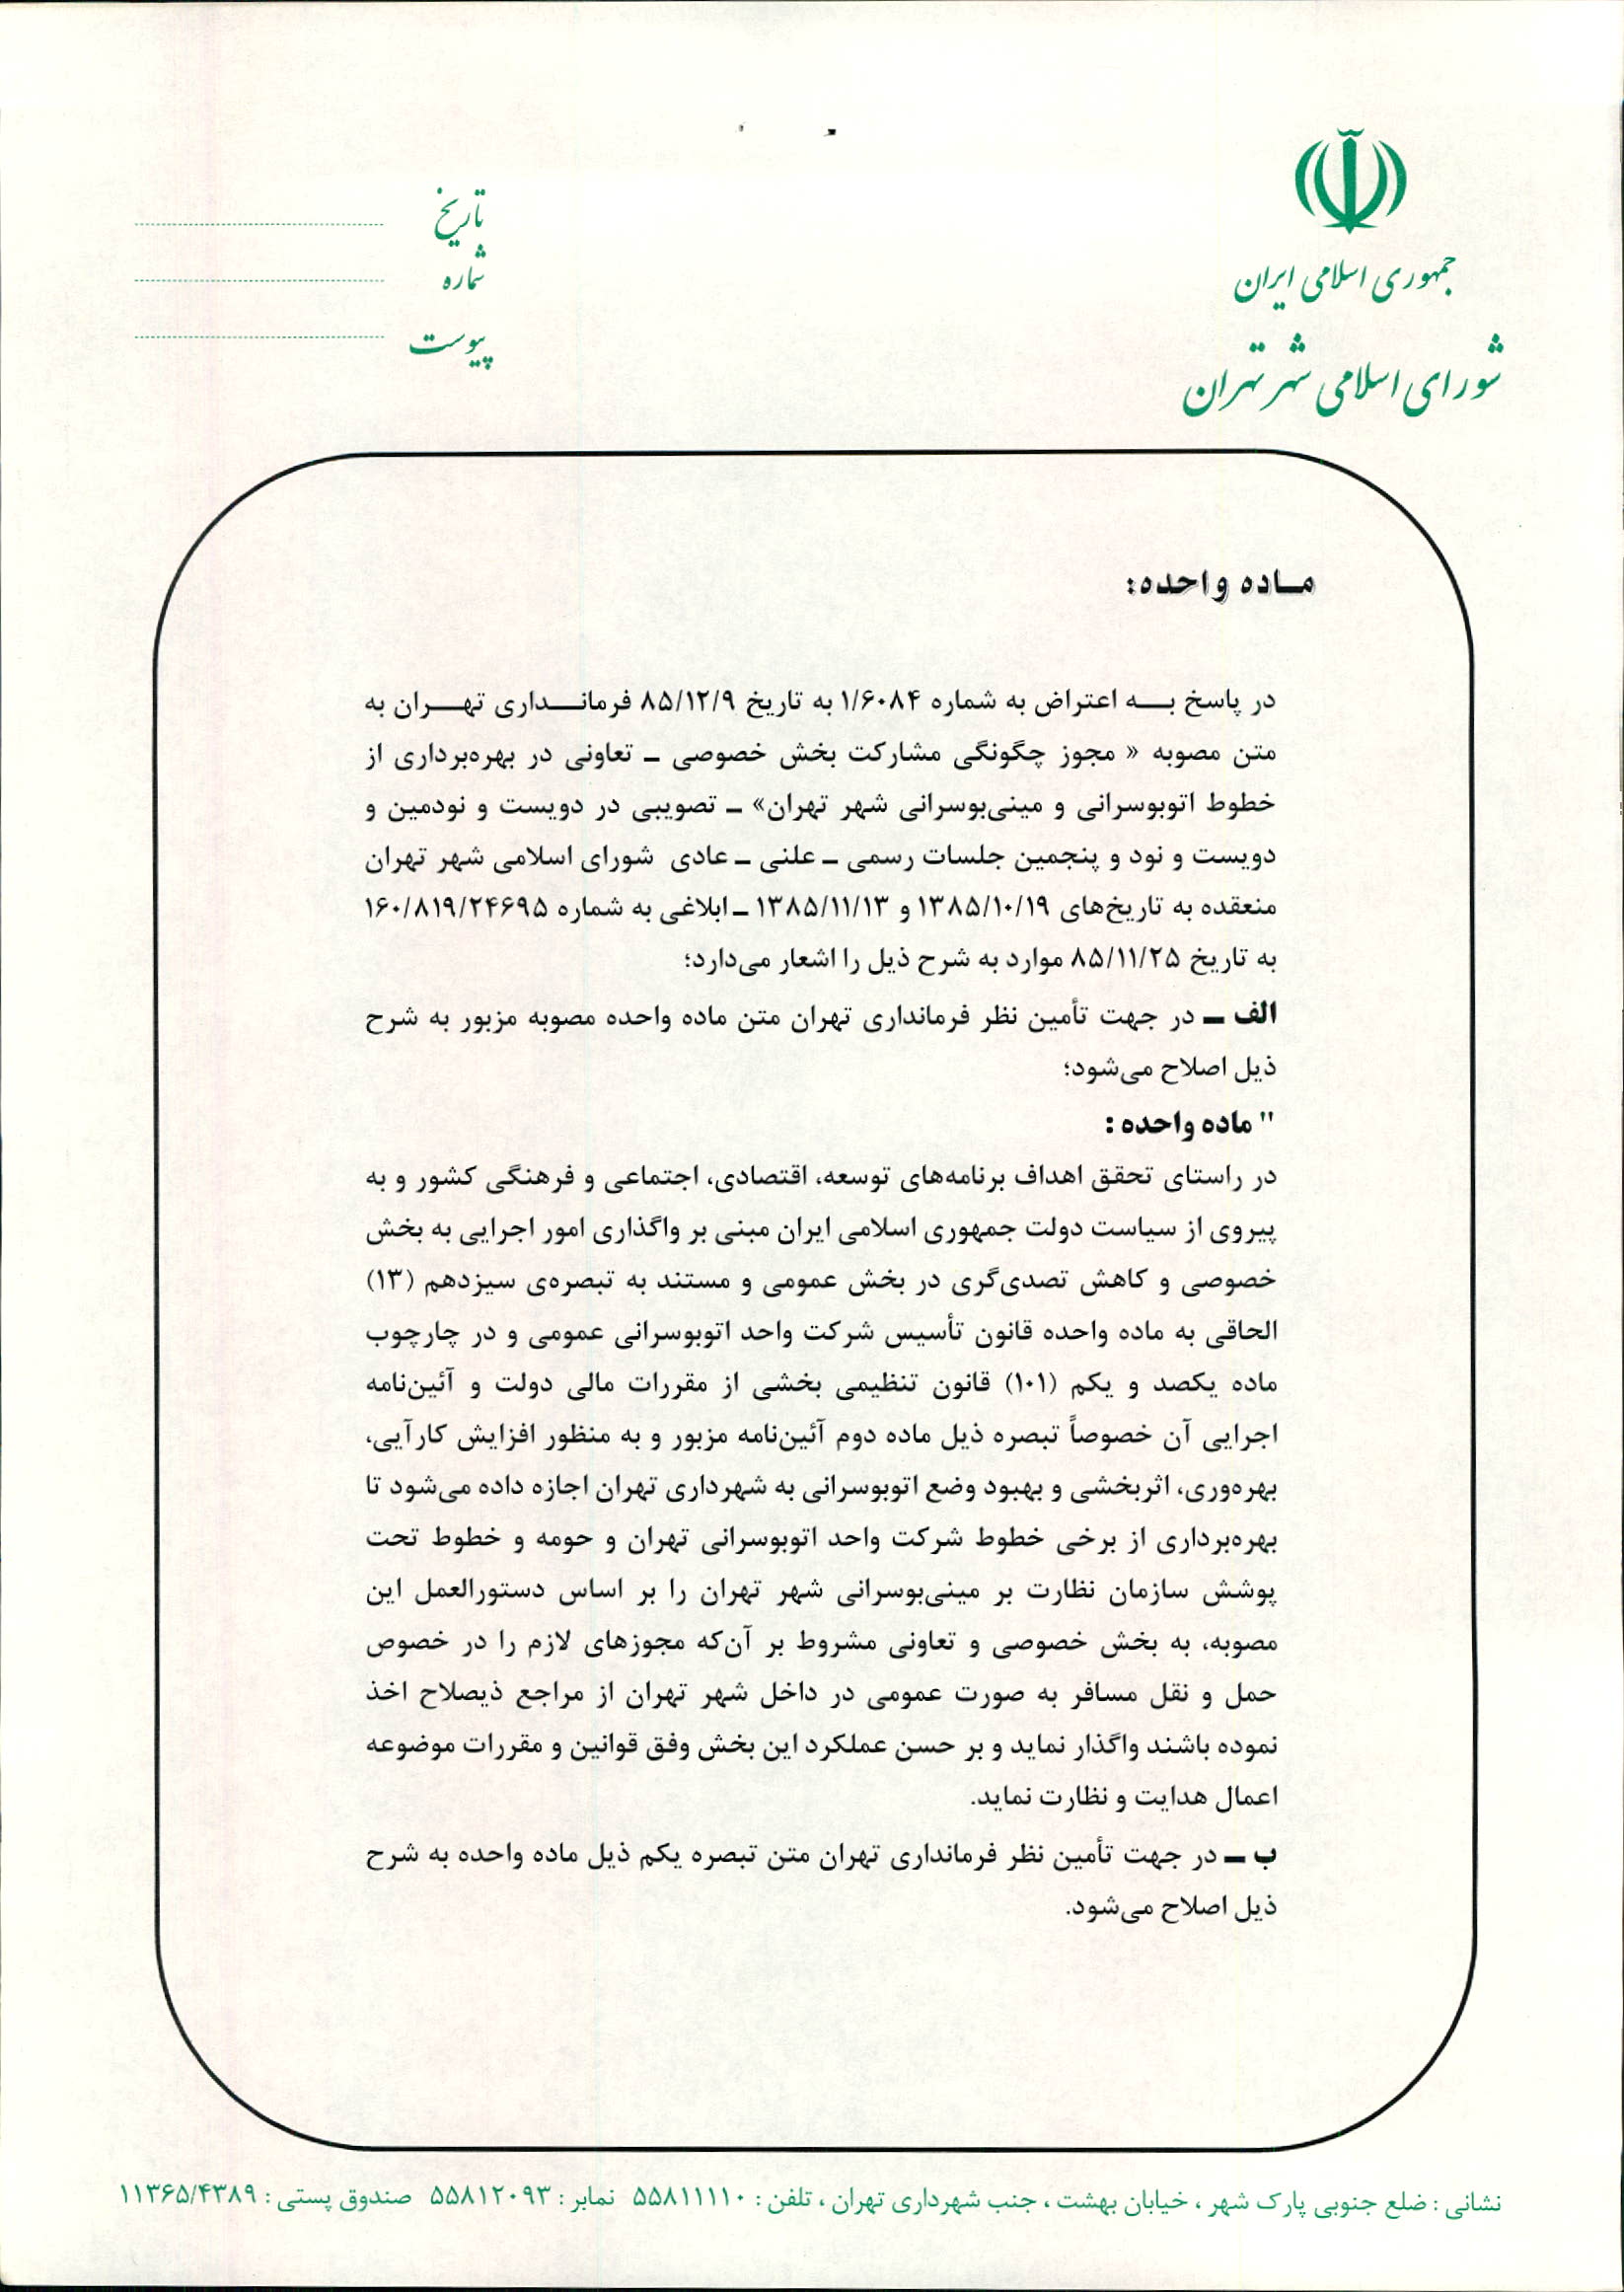 جمهوری اسلامی ایران
شورای اسلامی شهر تهران
تاریخ
شماره
پیوست
مـاده واحده:
در پاسخ بـــه اعتراض به شماره ۱/۶۰۸۴ به تاریخ ۸۵/۱۲/۹ فرمانـــداری تهـــران به
متن مصوبه « مجوز چگونگی مشارکت بخش خصوصی ـ تعاونی در بهره‌برداری از
خطوط اتوبوسرانی و مینی‌بوسرانی شهر تهران» ـ تصویبی در دویست و نودمین و
دویست و نود و پنجمین جلسات رسمی ـ علنی ـ عادی شورای اسلامی شهر تهران
منعقده به تاریخ‌های ۱۳۸۵/۱۰/۱۹ و ۱۳۸۵/۱۱/۱۳ ـ ابلاغی به شماره ۱۶۰/۸۱۹/۲۴۶۹۵
به تاریخ ۸۵/۱۱/۲۵ موارد به شرح ذیل را اشعار می‌دارد؛
الف ـ در جهت تأمین نظر فرمانداری تهران متن ماده واحده مصوبه مزبور به شرح
ذیل اصلاح می‌شود؛
" ماده واحده :
در راستای تحقق اهداف برنامه‌های توسعه، اقتصادی، اجتماعی و فرهنگی کشور و به
پیروی از سیاست دولت جمهوری اسلامی ایران مبنی بر واگذاری امور اجرایی به بخش
خصوصی و کاهش تصدی‌گری در بخش عمومی و مستند به تبصره‌ی سیزدهم (۱۳)
الحاقی به ماده واحده قانون تأسیس شرکت واحد اتوبوسرانی عمومی و در چارچوب
ماده یکصد و یکم (۱۰۱) قانون تنظیمی بخشی از مقررات مالی دولت و آئین‌نامه
اجرایی آن خصوصاً تبصره ذیل ماده دوم آئین‌نامه مزبور و به منظور افزایش کارآیی،
بهره‌وری، اثربخشی و بهبود وضع اتوبوسرانی به شهرداری تهران اجازه داده می‌شود تا
بهره‌برداری از برخی خطوط شرکت واحد اتوبوسرانی تهران و حومه و خطوط تحت
پوشش سازمان نظارت بر مینی‌بوسرانی شهر تهران را بر اساس دستورالعمل این
مصوبه، به بخش خصوصی و تعاونی مشروط بر آن‌که مجوزهای لازم را در خصوص
حمل و نقل مسافر به صورت عمومی در داخل شهر تهران از مراجع ذیصلاح اخذ
نموده باشند واگذار نماید و بر حسن عملکرد این بخش وفق قوانین و مقررات موضوعه
اعمال هدایت و نظارت نماید.
ب ـ در جهت تأمین نظر فرمانداری تهران متن تبصره یکم ذیل ماده واحده به شرح
ذیل اصلاح می‌شود.
نشانی : ضلع جنوبی پارک شهر ، خیابان بهشت ، جنب شهرداری تهران ، تلفن : ۵۵۸۱۱۱۱۰ نمابر : ۵۵۸۱۲۰۹۳ صندوق پستی : ۱۱۳۶۵/۴۳۸۹